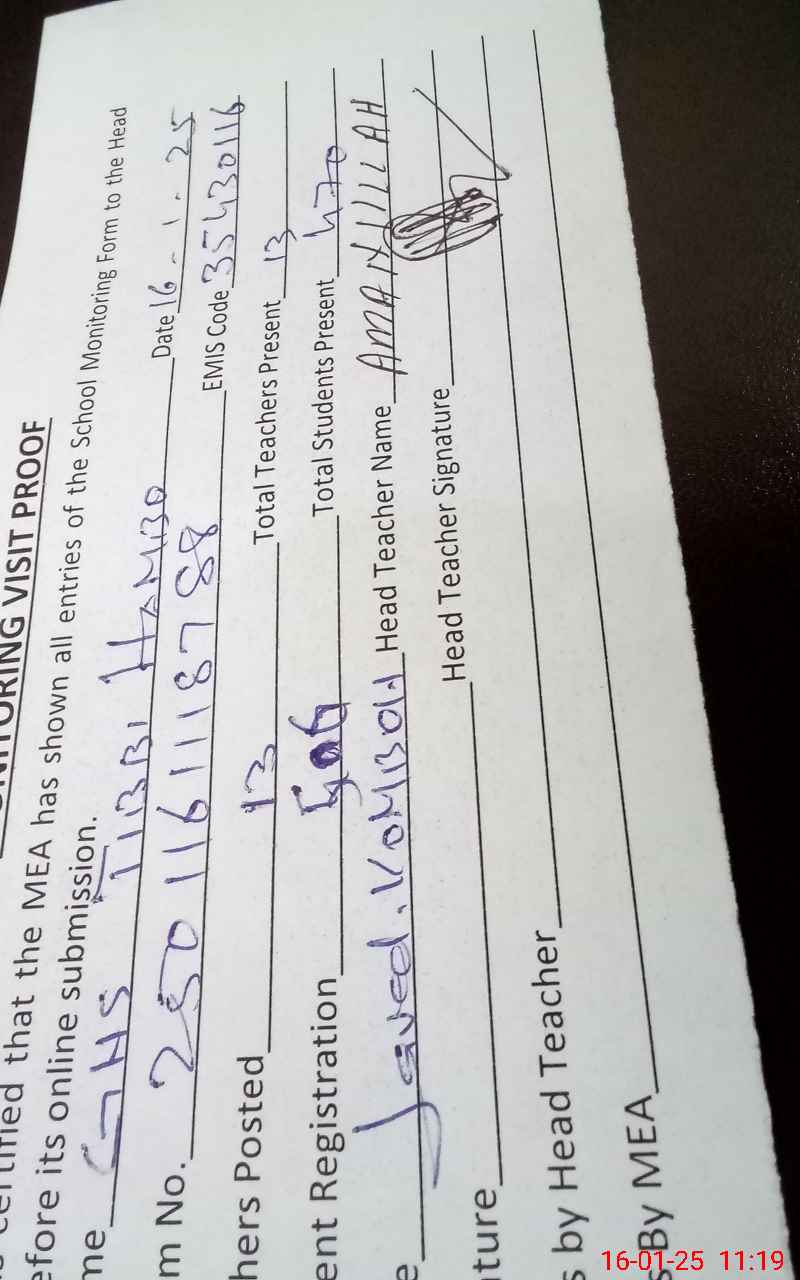 NITORING VISIT PROOF
certified that the MEA has shown all entries of the School Monitoring Form to the Head
efore its online submission.
me GHS TIBBI HAMBO Date 16-1-25
m No. 2501161118788 EMIS Code 35430116
hers Posted 13 Total Teachers Present 13
ent Registration Total Students Present 470
e Javed. KOMBOH Head Teacher Name
ture Head Teacher Signature
s by Head Teacher
s By MEA
16-01-25 11:19